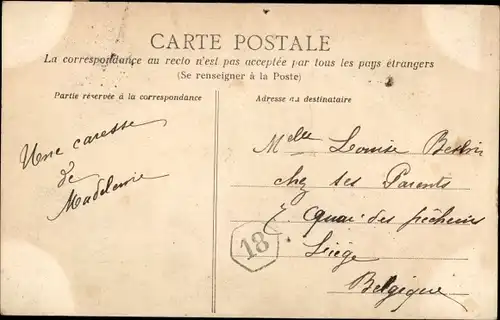 CARTE POSTALE
La correspondance au recto n'est pas acceptée par tous les pays étrangers
(Se renseigner à la Poste)
Partie réservée à la correspondance
Adresse du destinataire
Une caresse
de
Madeleine
Melle Louise
chez ses Parents
quai des pêcheurs
Liège
Belgique
18